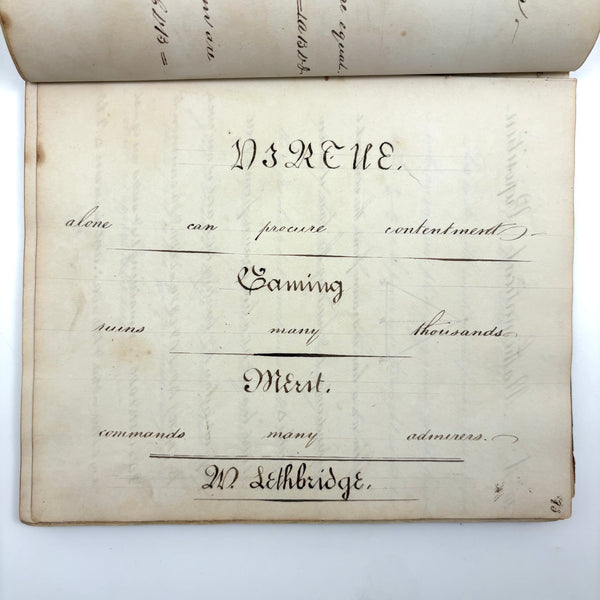 VIRTUE.
alone can procure contentment
Gaming
ruins many thousands
Merit.
commands many admirers.
W Lethbridge.